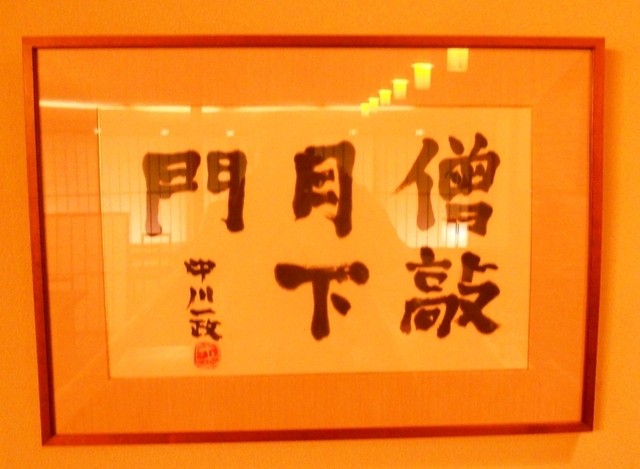 僧敲
月下
門
中川一政